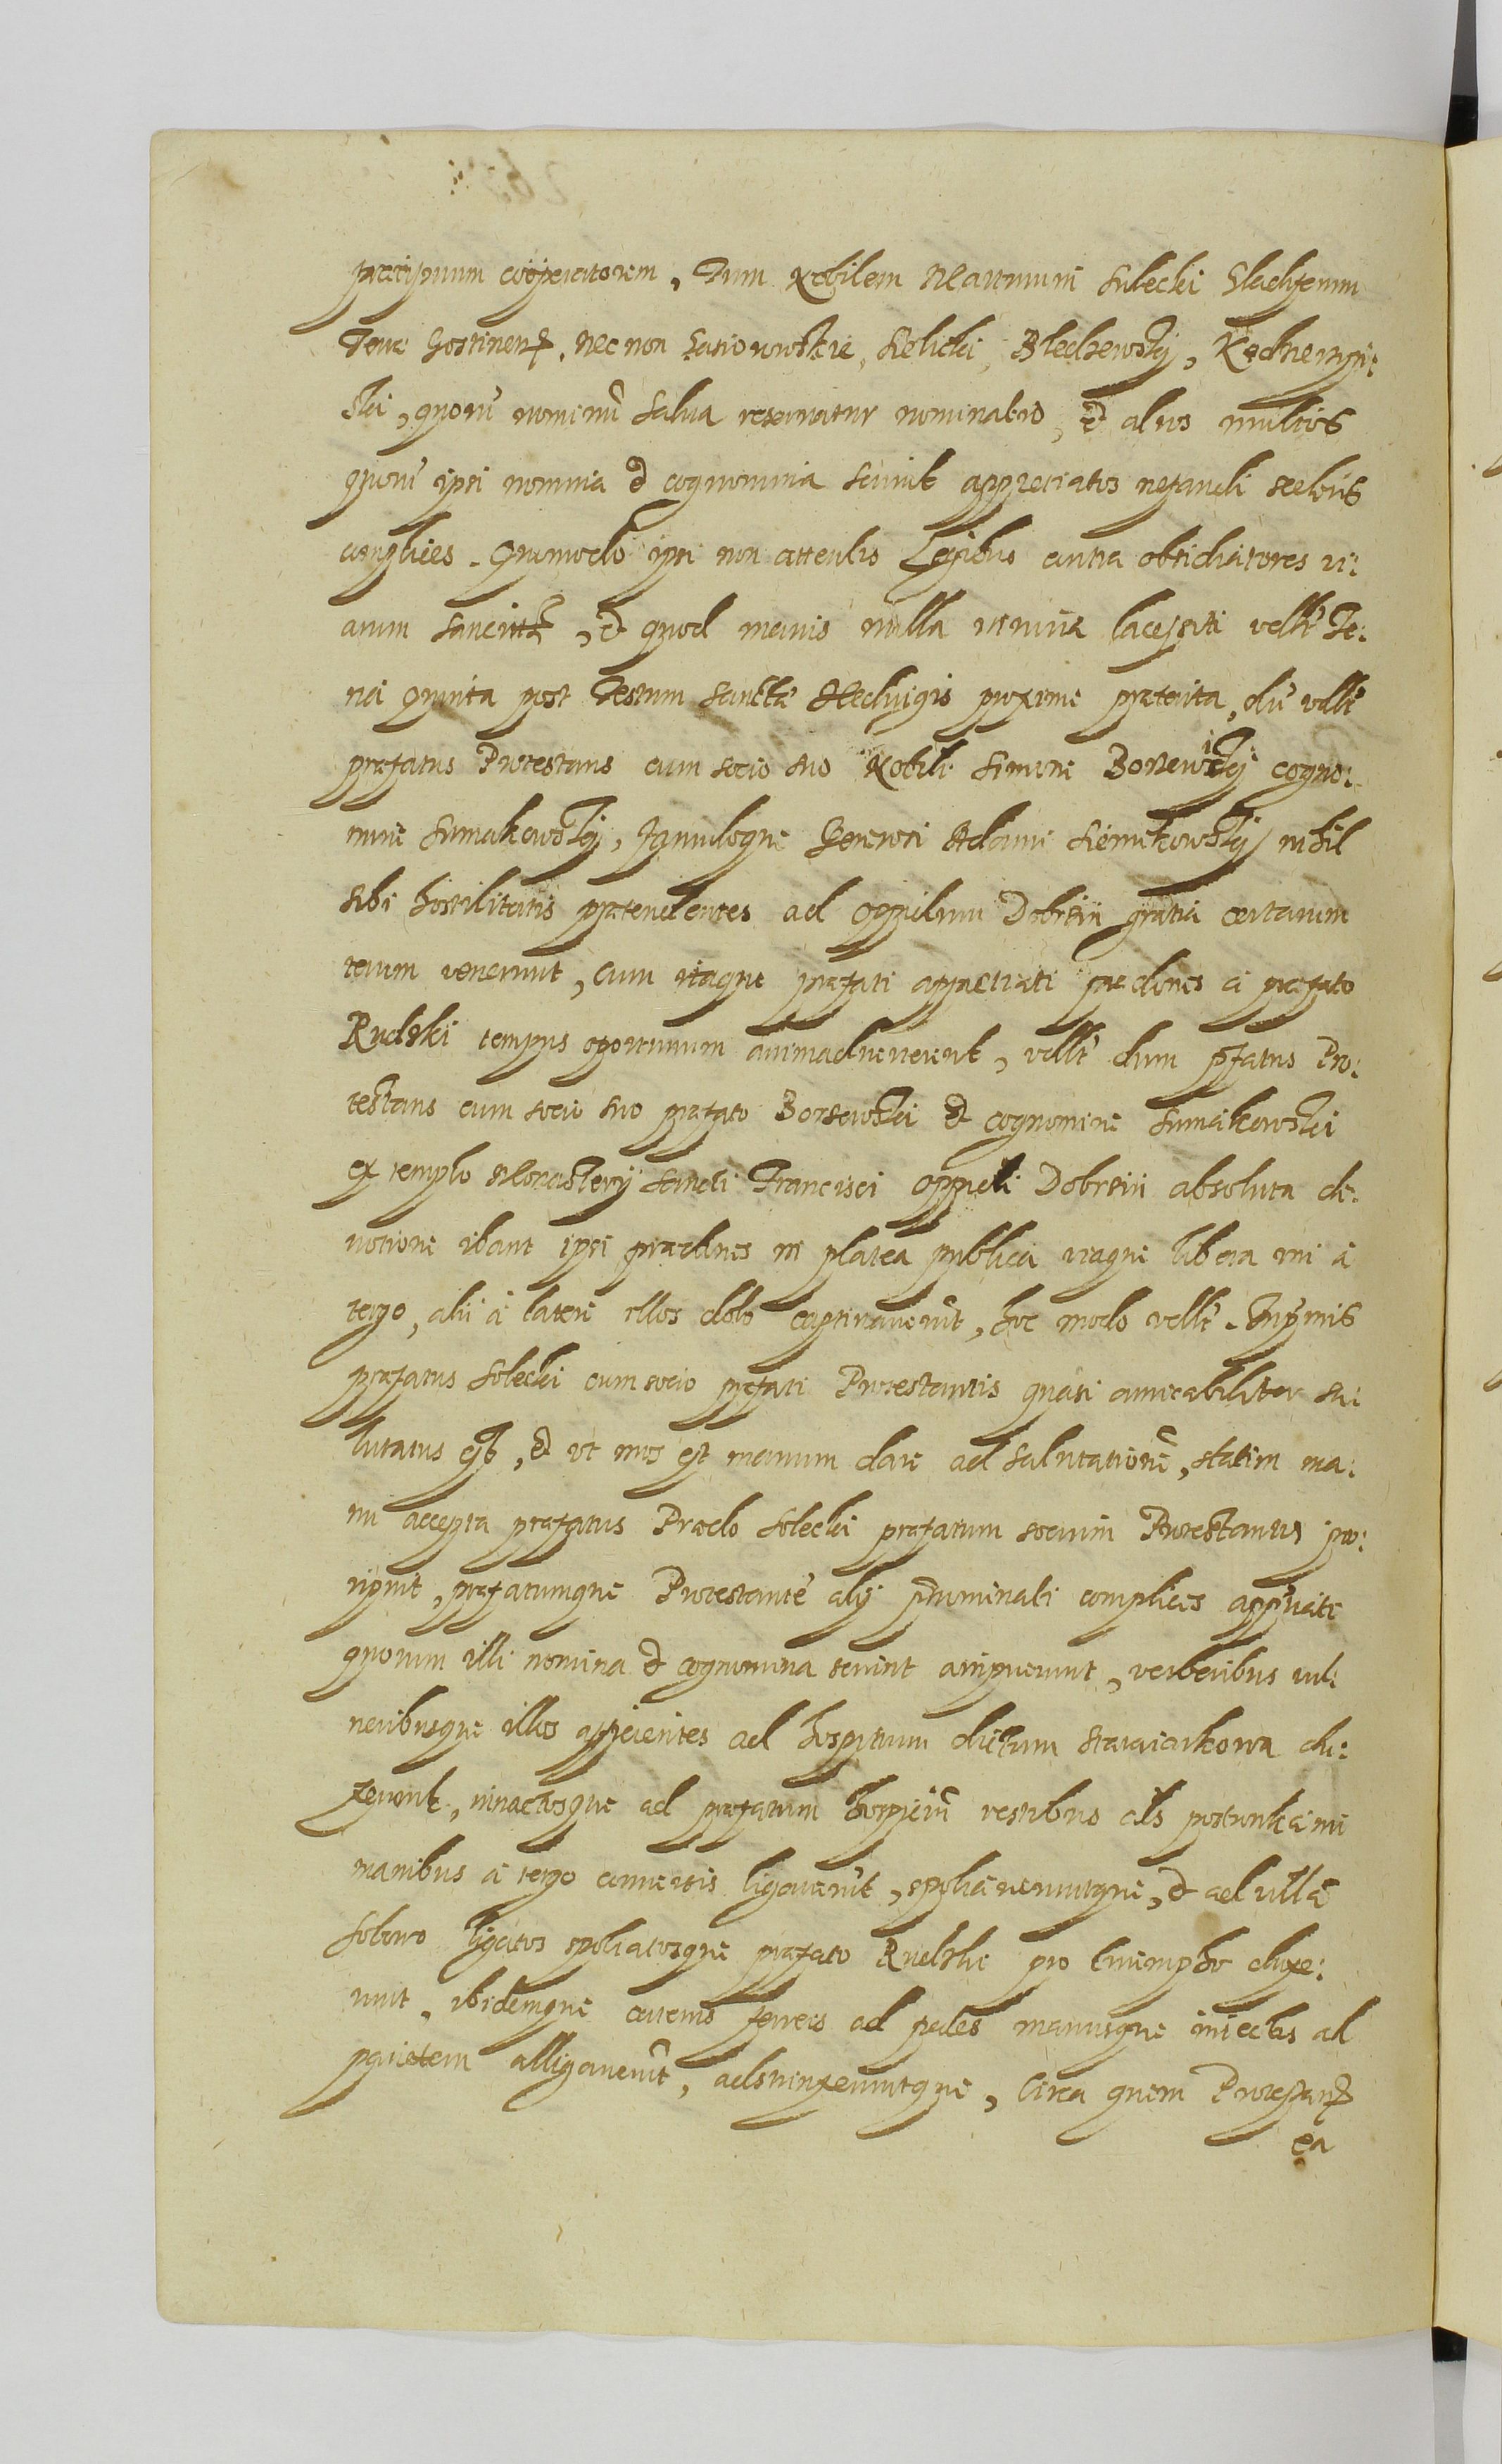 præcipuum coöperatorem, Tum Nobilem Martinum Sulecki Slachteum
Terræ Gostinens, nec non Gasiorowskie, Kelicki, Blechewskj, Kechremps:
ski, quorũ nominũ salua reseruatur nominatio, et alios multos
quorũ ipsi nomina et cognomina sciunt appreciatos nefandi sceleris
complices. Quomodo ipsi non attentis Legibus contra obsidiatores vi:
arum sancitis, et quod maius nulla iniuria lacessiti vellẽ Fe:
ria Quinta post Festum Sanctæ Heduigis proxime præterita, dũ vellẽ
præfatus Protestans cum socio suo Nobili Simone Borzewiskj cogno:
mine Sumakowskj, famuloque Generosi Adami Siemikowskj nihil
sibi hostilitatis prætendentes ad Oppidum Dobrzin gratia certarum
rerum venerunt, cum itaque præfati appretiati prædones a præfato
Rudski tempus oportunum animaduerterent, vellẽ dum pfatus Pro:
testans cum socio suo præfato Borzewski et cognomine Sumakowski
ex templo Monasterij Sancti Francisci oppidi Dobrzin absoluta de:
uotione ibant ipsi prædones in platea publica viaque libera uni a
tergo, alii a latere illos dolo captiuauerũt, hoc modo vellẽ. Inprimis
præfatus Solecki cum socio præfati Protestantis quasi amicabiliter sa:
lutatus est, et vt mos est manum dare ad salutationẽ, statim ma:
nu accepta præfatus Prædo Solecki præfatum socium Protestantis pro:
ripuit, præfatumque Protestantẽ alij pnominati complices apprẽciati
quorum illi nomina et cognomina sciunt arripuerunt, verberibus vul:
neribusque illos afficientes ad hospitium dictum Starniarkowa du:
xerunt, vinactosque ad præfatum hospiciũ restibus als postronkami
manibus a tergo conuersis ligauerũt, spoliauerũntque, et ad villã
Solowo ligatos spoliatosque præfato Rudski pro triumpho duxe:
runt, ibidemque catenis ferreis ad pedes manusque iniectis ad
parietem alligauerũt, adstrinxeruntque, Circa quem Protestans
ea